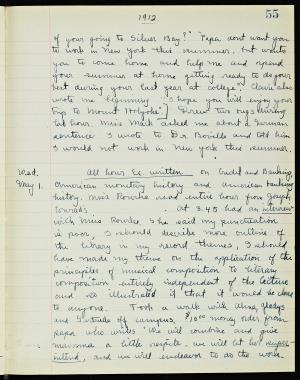 1912
55
of your going to Silver Bay?" "Papa dont want you
to work in New York this summer, but wants
you to come home and help me and spend
your summer at home getting ready to do your
best during your last year at college". Clara also
wrote me beginning "I hope you will enjoy your
trip to Mount Holyoke". Drew two rugs during
lab hour. Miss Mack asked me about a German
sentence. I wrote to Dr. and told him
I would not work in New York this summer.
Wed. All hour Ec. written on Credit and Banking,
May 1. American monetary history and American banking
history. Miss Rourke read entire hour from Joseph
Conrad. At 3.45 had an interview
with Miss Rourke, she said my punctuation
is poor, I should describe more outline of
the library in my record themes, I should
have made my theme on the application of the
principles of musical composition to literary
composition entirely independent of the lecture
and so illustrated it that it would be clear
to anyone. Took a walk with Alma, Gladys
and Gertrude off campus. $10.00 money order from
papa who writes "We will combine and give
mamma a little respite. We will let her
, and we will endeavor to do the work